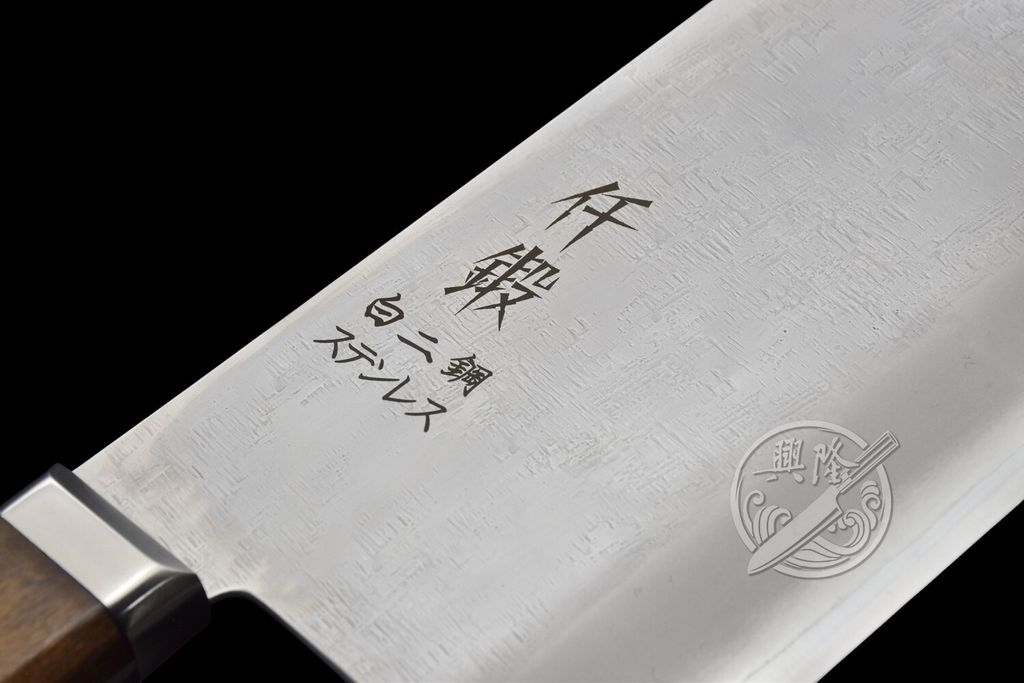 仟鍛
白二鋼
ステンレス
興隆